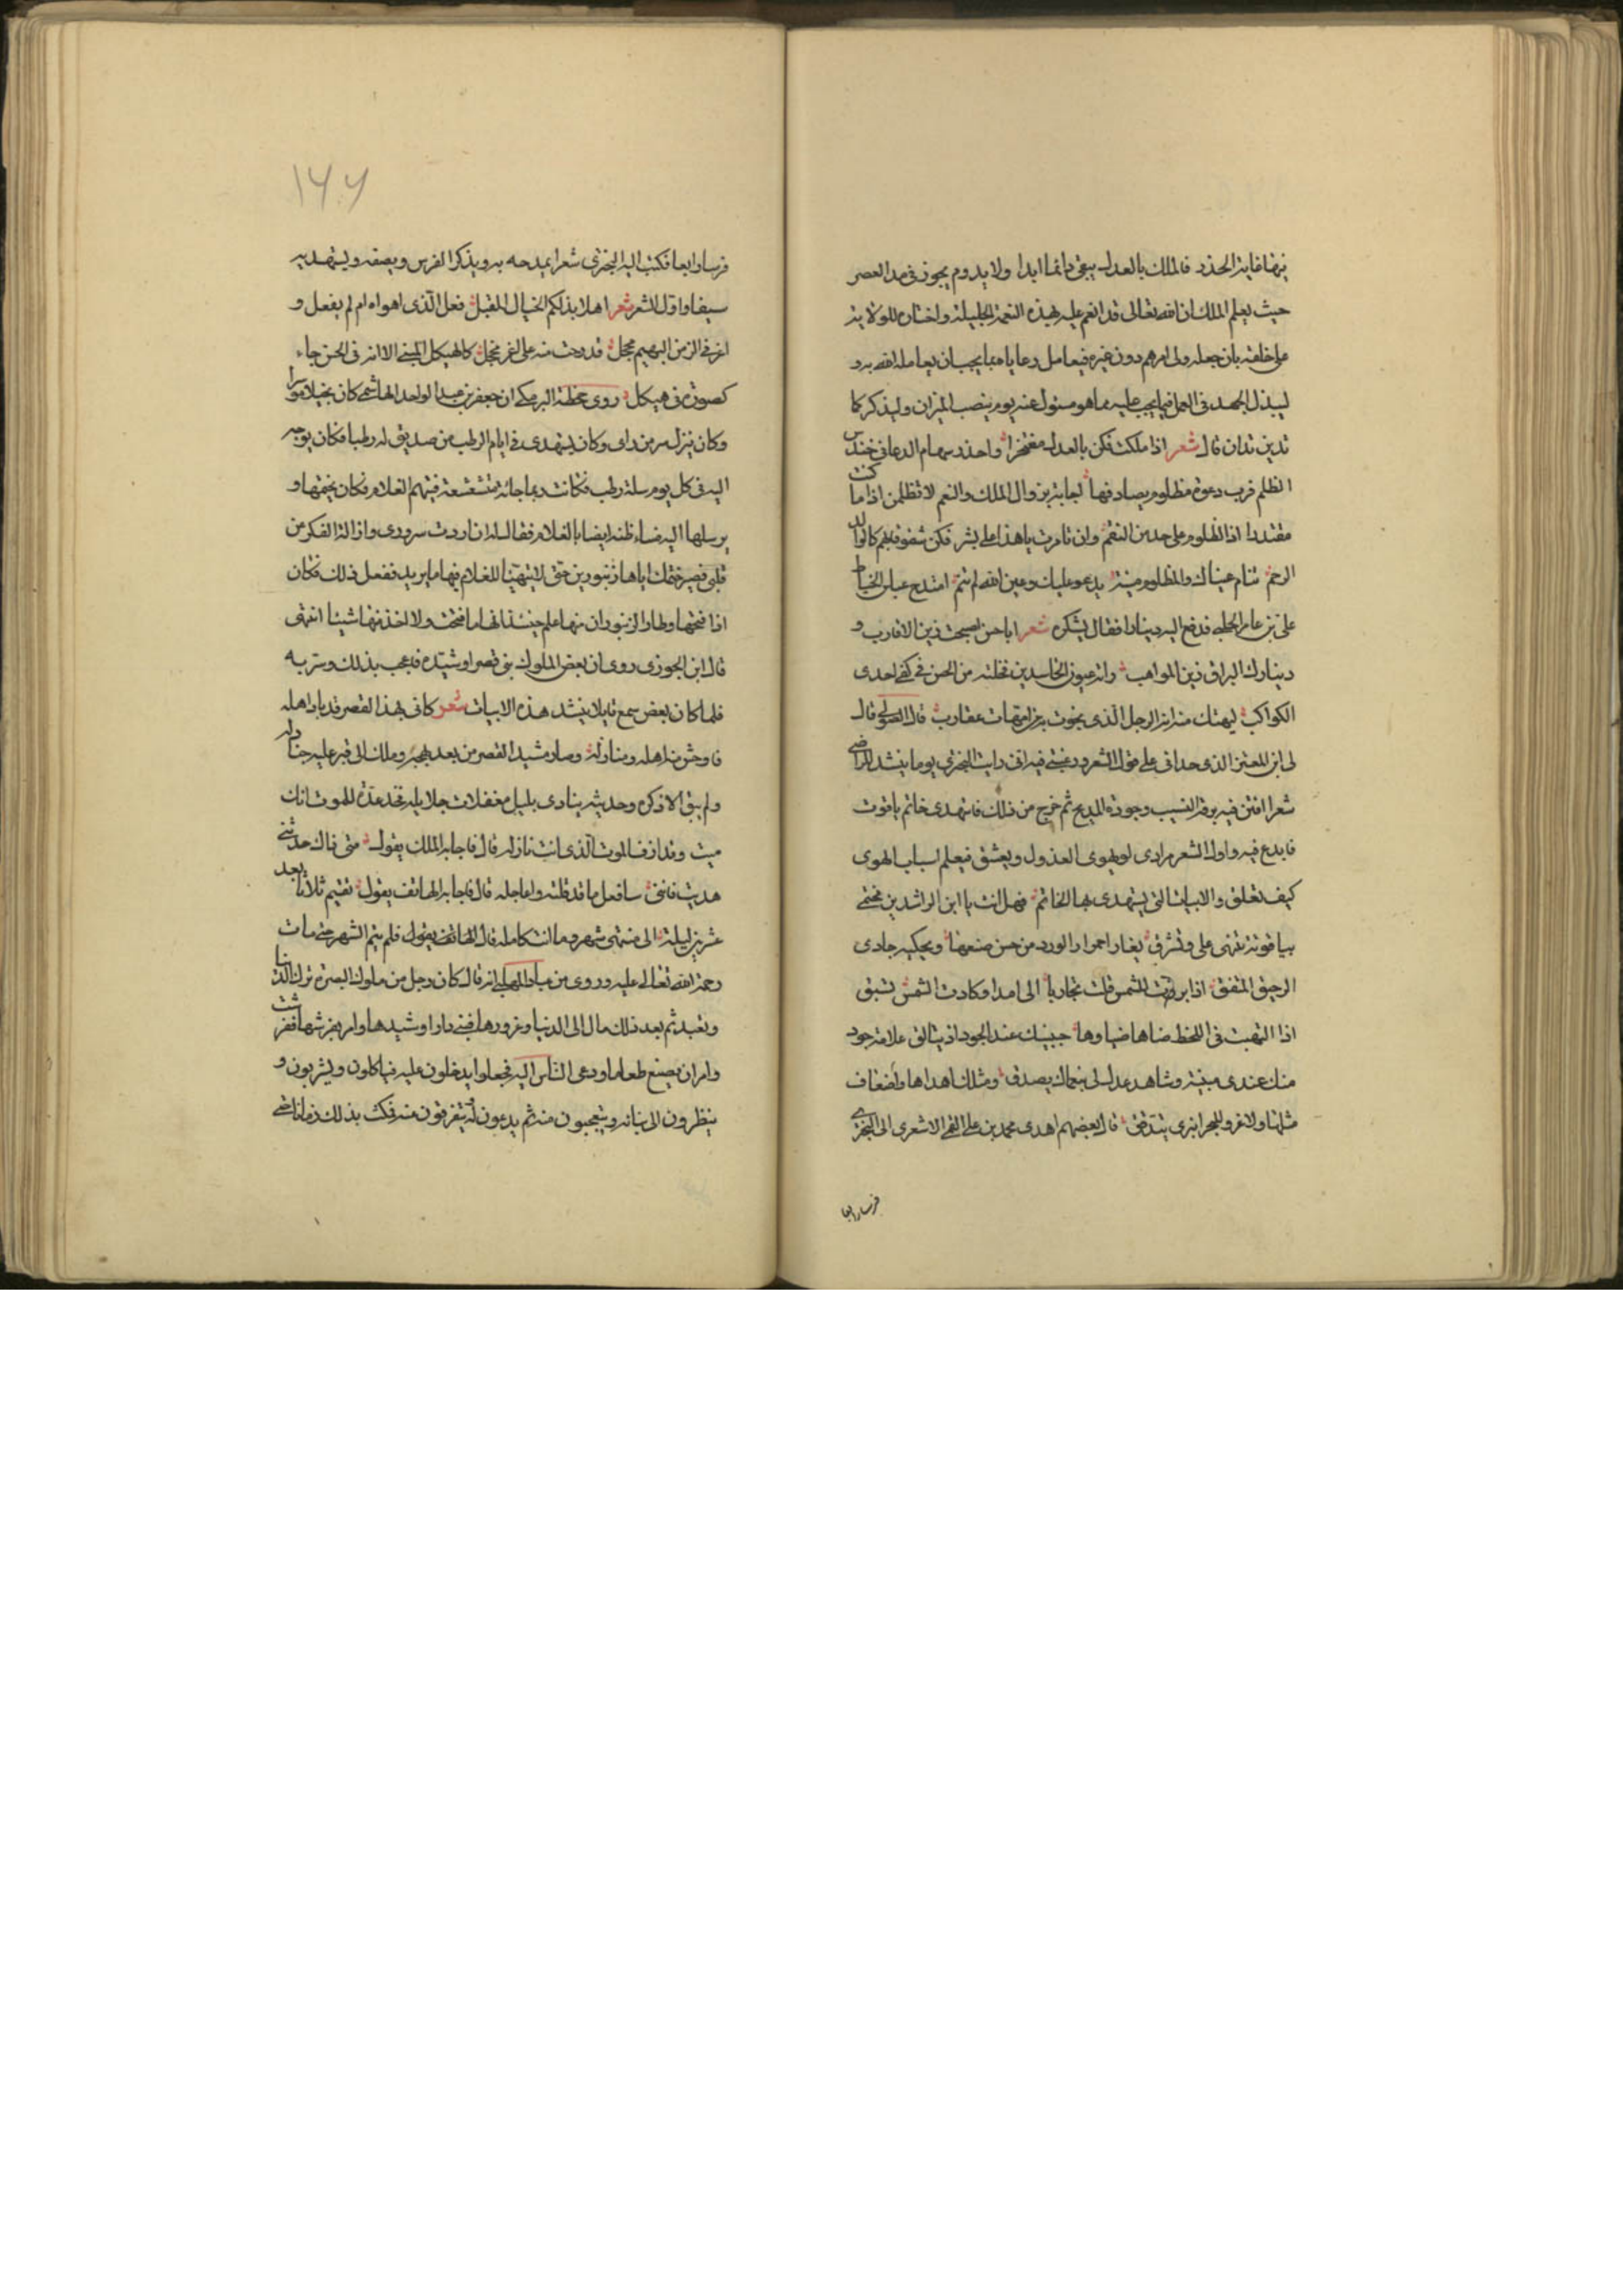 فالملك بالعدل يبقى دائما ابدا ولا يدوم بجوز فى مدا العصر
حيث يعلم الملك ان الله تعالى قد انعم عليه بهذه النعمة الجليلة واختاره للولاية
على خلقه بان جعله ولى امرهم دون غيره فيعامل رعاياه بما يجب ان يعامله الله به و
ليبذل الجهد فى العمل فيما يجب عليه مما هو مسئول عنه يوم ينصب الميزان وليذكر كما
تدين تدان قال شعر اذا ملكت فكن بالعدل مفتخرا واحذر سهام الدعا فى خندس
الظلم فرب دعوة مظلوم يصادفها زوال الملك والنعم لا تظلمن اذا ما كنت
مقتدرا اذا المظلوم على حد من النقم وان تامرت يا هذا على بشر فكن شفوقا بهم كالوالد
الرحم تنام عيناك والمظلوم منتبه يدعو عليك وعين الله لم تنم امتدح عباس الخياط
على بن عامر فدفع اليه دينارا فقال يشكره شعر ايا حسن اصبحت زين الاقارب و
دينارك البراق زين المواهب من الحسن فى كفى احدى
الكواكب ليهتك منه ابن الرجل الذى يموت امهات عقارب قال الصولى قال
لى ابن المعتز الذى حدانى على قول الشعر ورغبنى فيه انى رايت البحترى يوما ينشد للراضى
شعرا افتن فيه برقة النسيب وجودة المديح ثم خرج من ذلك فاستهدى خاتم ياقوت
فابدع فيه واول الشعر مرادى لو يهوى العذول ويعشق فيعلم اسباب الهوى
كيف تعلق والابيات التى يستهدى بها الخاتم فهل انت يا ابن الراشدين مختمى
بياقوتة تبهى على وتشرق يغار احمرار الورد من حسن صنعها ويحكيه جادى
الرحيق المتفق اذا برزت للشمس قلت تجاريا الى امد او كادت الشمس تسبق
اذا التهبت فى اللحظ ضاها ضياوها جبينك عند الجود اذ يتالق علامة جود
منك عندى مبينة وشاهد عدل لى بنعماك يصدق ومثلك اهداها واضعاف
مثلها ولا غرو للبحر انبرى يتدفق قال بعضهم اهدى محمد بن على القمى الاشعرى الى البحترى
فرسا رابعا
١٦٦
فرسا رابعا فكتب اليه البحترى شعرا يمدحه به ويذكر الفرس ويصفه ويستهديه
سيفا واول الشعر شعر اهلا بذلكم الخيال المقبل فعل الذى اهواه ام لم يفعل و
اغر فى الزمن البهيم محجل قد رحت منه على اغر محجل كالهيكل المبنى الا انه فى الحسن جاء
كصورة فى هيكل روى جحظة البرمكى ان جعفر بن عبد الواحد الهاشمى كان بخيلا
وكان ينزل سر من راى وكان يستهدى فى ايام الرطب من صديق له رطبا فكان يوجه
اليه فى كل يوم سلة رطب فكانت ربما جائته متشعثة فيتهم الغلام فكان يختمها و
يرسلها اليه فساء ظنه ايضا بالغلام فقال له ان اردت سرورى وازالة الفكر من
قلبى فصير ختمك اياها زنبورين حتى لا يتهيأ للغلام فيها ما يريد ففعل ذلك فكان
اذا فتحها وطار الزنبوران منها علم حينئذ انها ما فتحت ولا اخذ منها شيئا انتهى
قال ابن الجوزى روى ان بعض الملوك بنى قصرا وشيده فاعجب بذلك وسر به
فلما كان بعض سمع قايلا ينشد هذه الابيات شعر كانى بهذا القصر قد باد اهله
فاوحش منه اهله ومنازله وصار مشيد القصر من بعد بهجة وملك الى قبر عليه جنادله
ولم يبق الا ذكره وحديثه ينادى بليل معولات حلايله تجد عدة للموت انك
ميت وقد ازف الموت الذى انت نازله قال فاجابه الملك يقول متى ذاك حدثنى
هديت فاننى سافعل ما قد قلته واعاجله قال فاجابه الهاتف يقول تقيم ثلاثا بعد
عشرين ليلة الى منتهى شهر وما انت كامله قال الهاتف يقول فلم يتم الشهر حتى مات
رحمة الله تعالى عليه وروى من عباد المهلبى انه قال كان رجل من ملوك البصرة ترك الدنيا
وتعبد ثم بعد ذلك مال الى الدنيا وغرورها فبنى دارا وشيدها وامر بفرشها ففرشت
وامر ان يصنع طعاما ودعى الناس اليه فجعلوا يدخلون عليه فياكلون ويشربون و
ينظرون الى بنائه ويتعجبون منه ثم يدعون له يتفرقون منه فمكث بذلك زمانا حتى